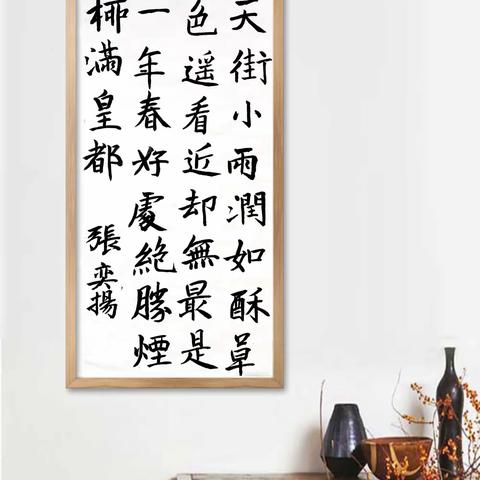 天街小雨潤如酥草
色遥看近却無最是
一年春好處絶勝煙
柳滿皇都
張奕揚